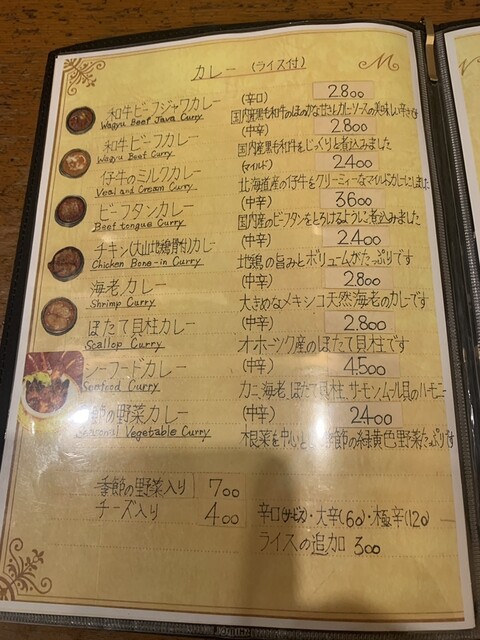 カレー (ライス付)
和牛ビーフジャワカレー (辛口) 2.800
Wagyu Beef Java Curry 国内産黒毛和牛のほのかな甘さとカレーソースの美味しい辛さです
和牛ビーフカレー (中辛) 2.800
Wagyu Beef Curry 国内産黒毛和牛をじっくりと煮込みました
仔牛のミルクカレー (マイルド) 2.400
Veal and Cream Curry 北海道産の仔牛をクリーミィーなマイルドカレーにしました
ビーフタンカレー (中辛) 3.600
Beef tongue Curry 国内産のビーフタンをとろけるように煮込みました
チキン(大山地鶏骨付)カレー (中辛) 2.400
Chicken Bone-in Curry 地鶏の旨みとボリュームがたっぷりです
海老カレー (中辛) 2.800
Shrimp Curry 大きめなメキシコ天然海老のカレーです
ほたて貝柱カレー (中辛) 2.800
Scallop Curry オホーツク産のほたて貝柱です
シーフードカレー (中辛) 4.500
Seafood Curry カニ、海老、ほたて貝柱、サーモン、ムール貝のハーモニー
節の野菜カレー (中辛) 2.400
Seasonal Vegetable Curry 根菜を中心と 季節の緑黄色野菜たっぷりです
季節の野菜入り 700
チーズ入り 400
辛口(サービス)・大辛(60)・極辛(120)
ライスの追加 300